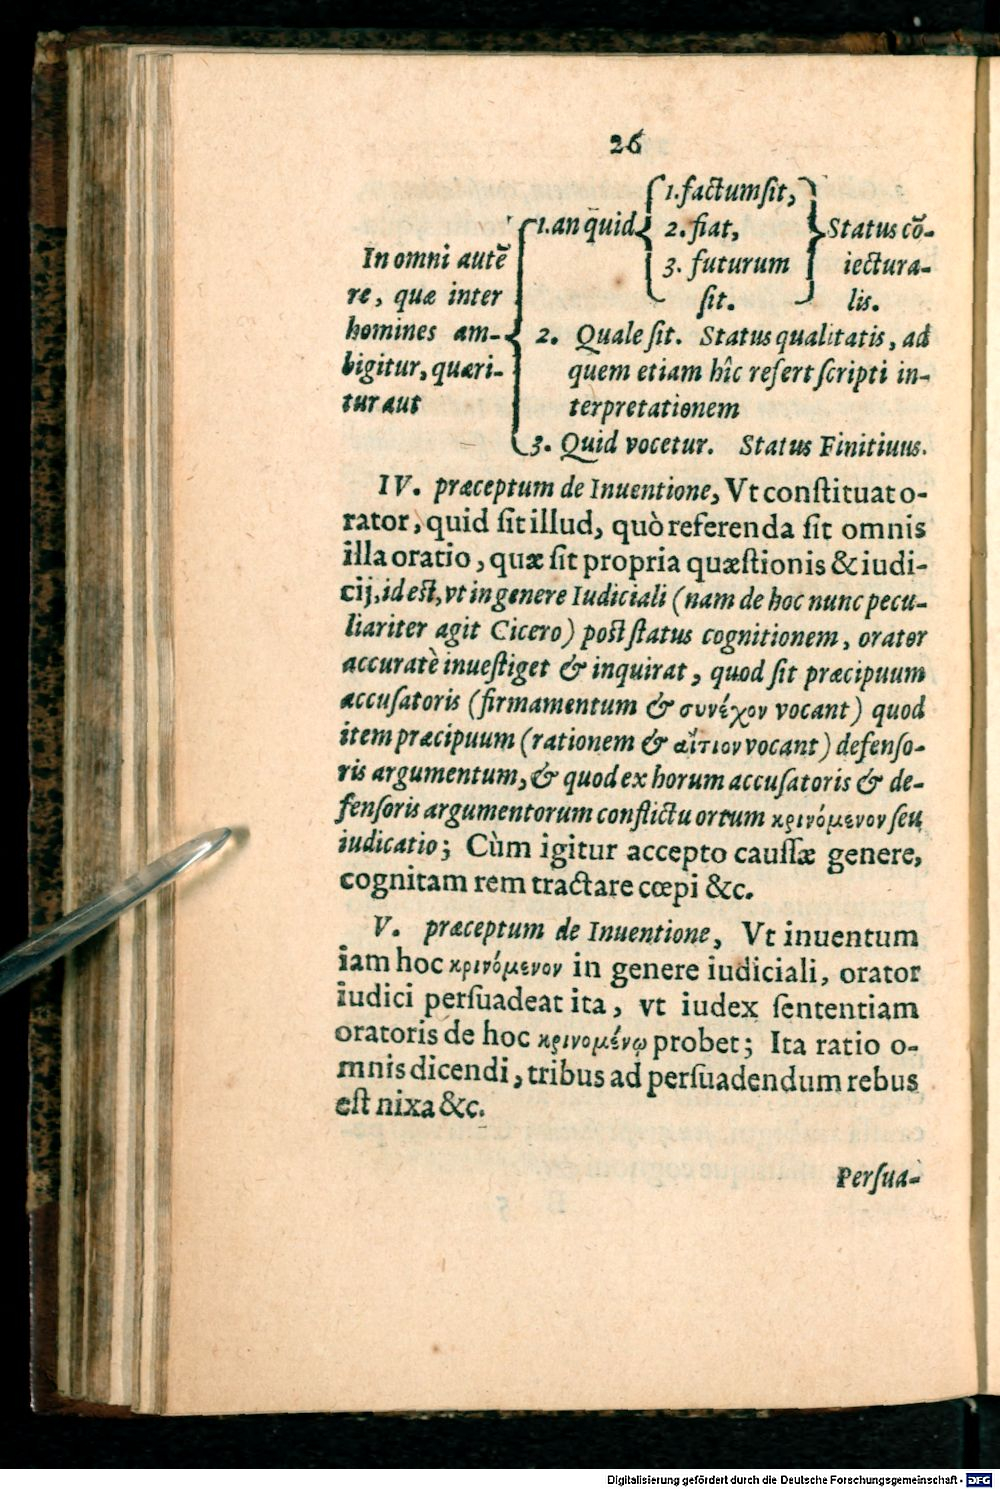 26
In omni autē
re, quæ inter
homines am-
bigitur, quæri-
tur aut
1. an quid
1. factum ſit,
2. fiat,
3. futurum
ſit.
Status cō-
iectura-
lis.
2. Quale ſit. Status qualitatis, ad
quem etiam hîc refert ſcripti in-
terpretationem
3. Quid vocetur. Status Finitiuus.
IV. præceptum de Inuentione, Vt conſtituat o-
rator, quid ſit illud, quò referenda ſit omnis
illa oratio, quæ ſit propria quæſtionis & iudi-
cij, id eſt, vt in genere Iudiciali (nam de hoc nunc pecu-
liariter agit Cicero) poſt ſtatus cognitionem, orator
accuratè inueſtiget & inquirat, quod ſit præcipuum
accuſatoris (firmamentum & συνέχον vocant) quod
item præcipuum (rationem & αἴτιον vocant) defenſo-
ris argumentum, & quod ex horum accuſatoris & de-
fenſoris argumentorum conflictu ortum κρινόμενον ſeu
iudicatio; Cùm igitur accepto cauſſæ genere,
cognitam rem tractare cœpi &c.
V. præceptum de Inuentione, Vt inuentum
iam hoc κρινόμενον in genere iudiciali, orator
iudici perſuadeat ita, vt iudex ſententiam
oratoris de hoc κρινομένῳ probet; Ita ratio o-
mnis dicendi, tribus ad perſuadendum rebus
eſt nixa &c.
Perſua-
Digitalisierung gefördert durch die Deutsche Forschungsgemeinschaft - DFG